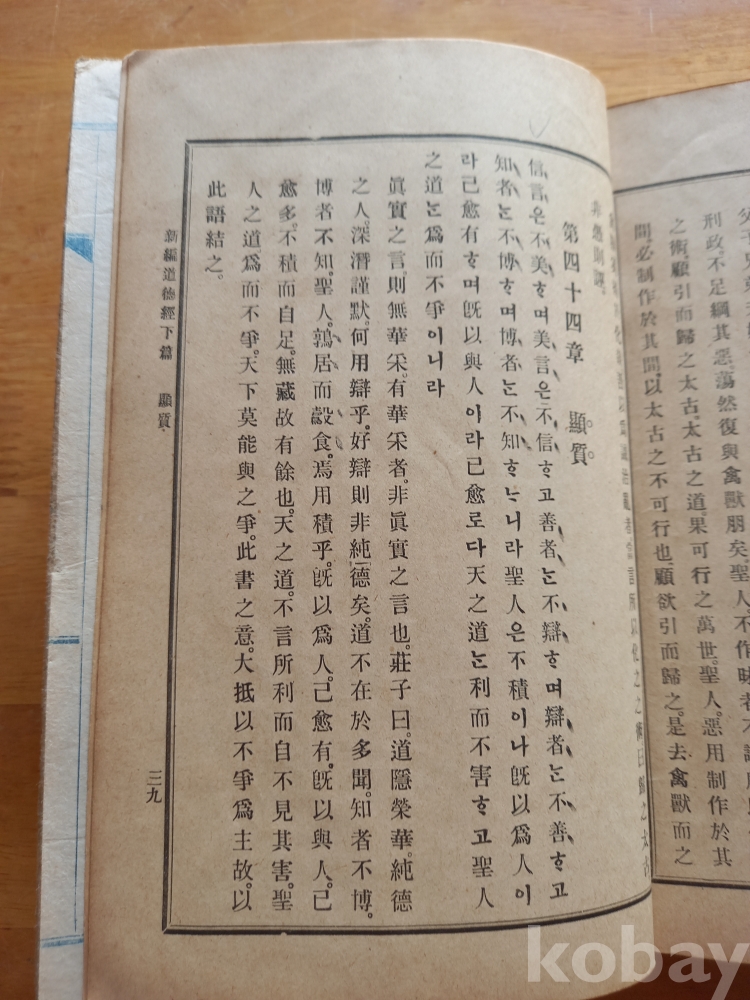 刑政。不足綱其惡。蕩然復與禽獸朋矣。聖人不作
之術。顧引而歸之太古。太古之道。果可行之萬世。聖人。惡用制作於其
間。必制作於其間。以太古之不可行也。顧欲引而歸之。是去禽獸而之
非愚則誣。
第四十四章 顯質。
信言은不美ᄒᆞ며美言은不信ᄒᆞ고善者ᄂᆞᆫ不辯ᄒᆞ며辯者ᄂᆞᆫ不善ᄒᆞ고
知者ᄂᆞᆫ不博ᄒᆞ며博者ᄂᆞᆫ不知ᄒᆞᄂᆞ니라聖人은不積이나旣以爲人이
라己愈有ᄒᆞ며旣以與人이라己愈로다天之道ᄂᆞᆫ利而不害ᄒᆞ고聖人
之道ᄂᆞᆫ爲而不爭이니라
眞實之言。則無華采。有華采者。非眞實之言也。莊子曰。道隱榮華。純德
之人。深潛謹默。何用辯乎。好辯則非純德矣。道不在於多聞。知者不博。
博者不知。聖人。鶉居而鷇食。焉用積乎。旣以爲人。己愈有。旣以與人。己
愈多。不積而自足。無藏故有餘也。天之道。不言所利而自不見其害。聖
人之道爲而不爭。天下莫能與之爭。此書之意。大抵以不爭爲主故。以
此語結之。
新編道德經下篇 顯質
三九
kobay